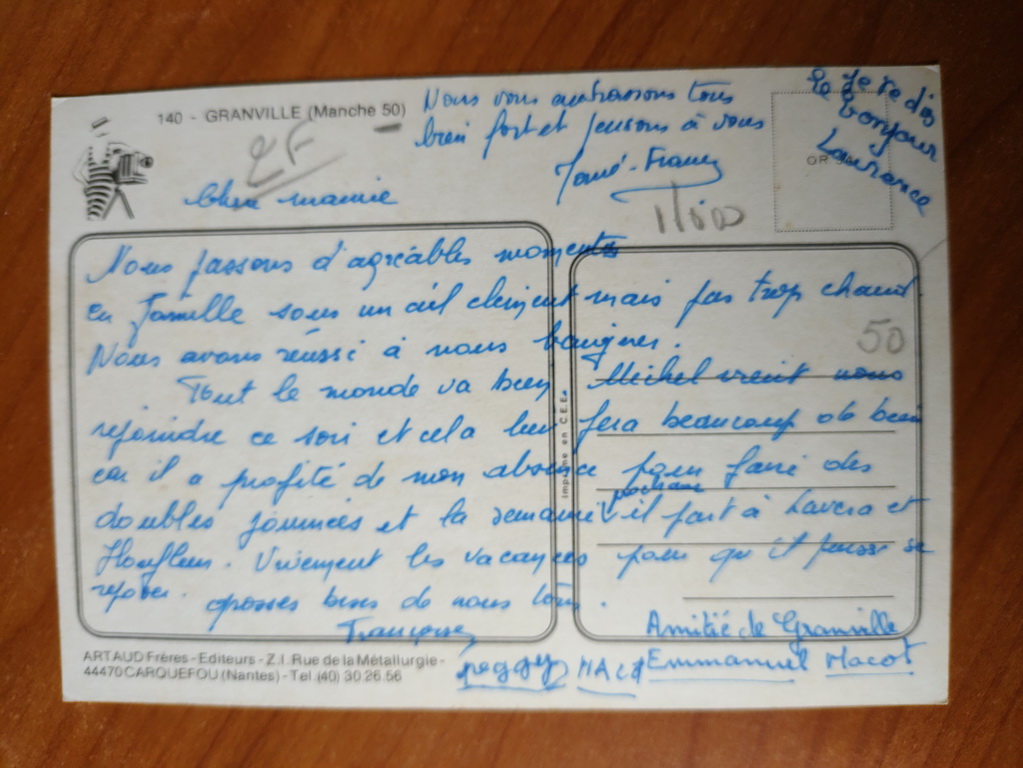 140 - GRANVILLE (Manche 50)
2F
Nous vous embrassons tous
bien fort et pensons à vous
Je te dis
le bonjour
Laurence
11600
Chère mamie
Nous passons d'agréables moments
en famille sous un ciel clément mais pas trop chaud
Nous avons réussi à nous baigner.
50
Tout le monde va bien. Michel vient nous
rejoindre ce soir et cela lui fera beaucoup de bien
car il a profité de mon absence pour faire des
doubles journées et la semaine prochaine il part à Lavera et
Honfleur. Vivement les vacances pour qu'il puisse se
reposer. grosses bises de nous tous.
Françoise
Imprimé en C.E.E.
Amitié de Granville
Emmanuel Macot
peggy MACOT
ARTAUD Frères - Editeurs - Z.I. Rue de la Métallurgie -
44470 CARQUEFOU (Nantes) - Tel. (40) 30 26 56